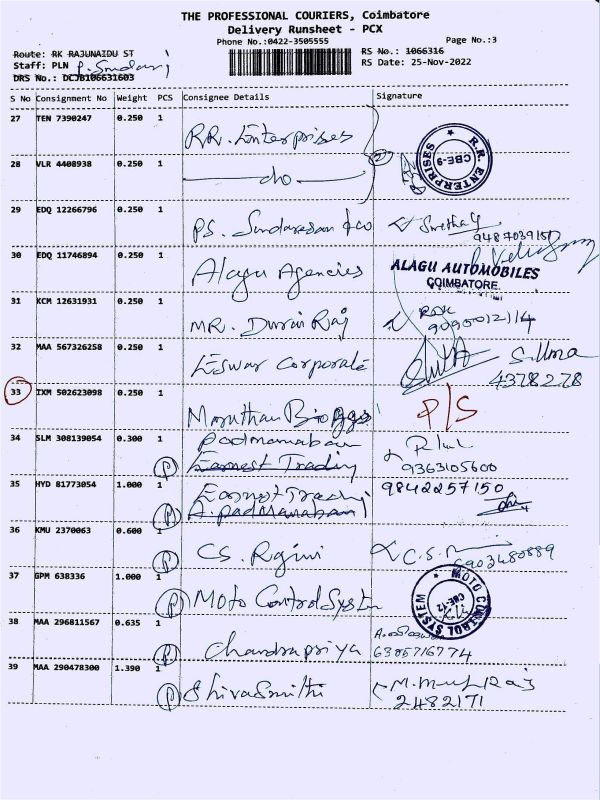 THE PROFESSIONAL COURIERS, Coimbatore
Delivery Runsheet - PCX
Phone No.:0422-3505555
Page No.:3
Route: RK RAJUNAIDU ST
RS No.: 1066316
Staff: PLN
RS Date: 25-Nov-2022
DRS No.: DCJB106631603
S No Consignment No Weight PCS Consignee Details Signature
27 TEN 7390247 0.250 1 RR. Enterprises
R.R. ENTERPRISES CBE-9
28 VLR 4408938 0.250 1 do
29 EDQ 12266796 0.250 1 PS. Sundaresan &co
30 EDQ 11746894 0.250 1 Alagu Agencies
ALAGU AUTOMOBILES
COIMBATORE.
31 KCM 12631931 0.250 1 MR. Durai Raj
32 MAA 567326258 0.250 1 Eswar Corporate
4378278
33 IXM 502623098 0.250 1 P/S
34 SLM 308139054 0.300 1 Padmanaban
P Earnest Trading 9363105600
35 HYD 81773054 1.000 1 Earnest Trading 9842257150
P A. Padmanaban
36 KMU 2370063 0.600 1
P CS. Rajini C.S.
37 GPM 638336 1.000 1
P Moto Control System
MOTO CONTROL SYSTEM CBE-12
38 MAA 296811567 0.635 1
P Chandrapriya 6385716774
39 MAA 290478300 1.390 1
P 2482171